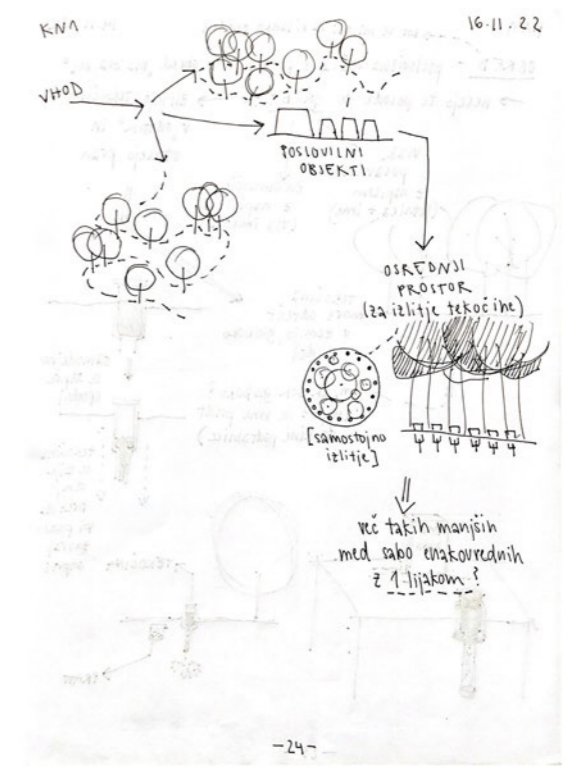 KNA
16.11.22
VHOD
POSLOVILNI
OBJEKTI
OSREDNJI
PROSTOR
(za izlitje tekočine)
[samostojno
izlitje]
več takih manjših
med sabo enakovrednih
z 1 lijakom?
-24-